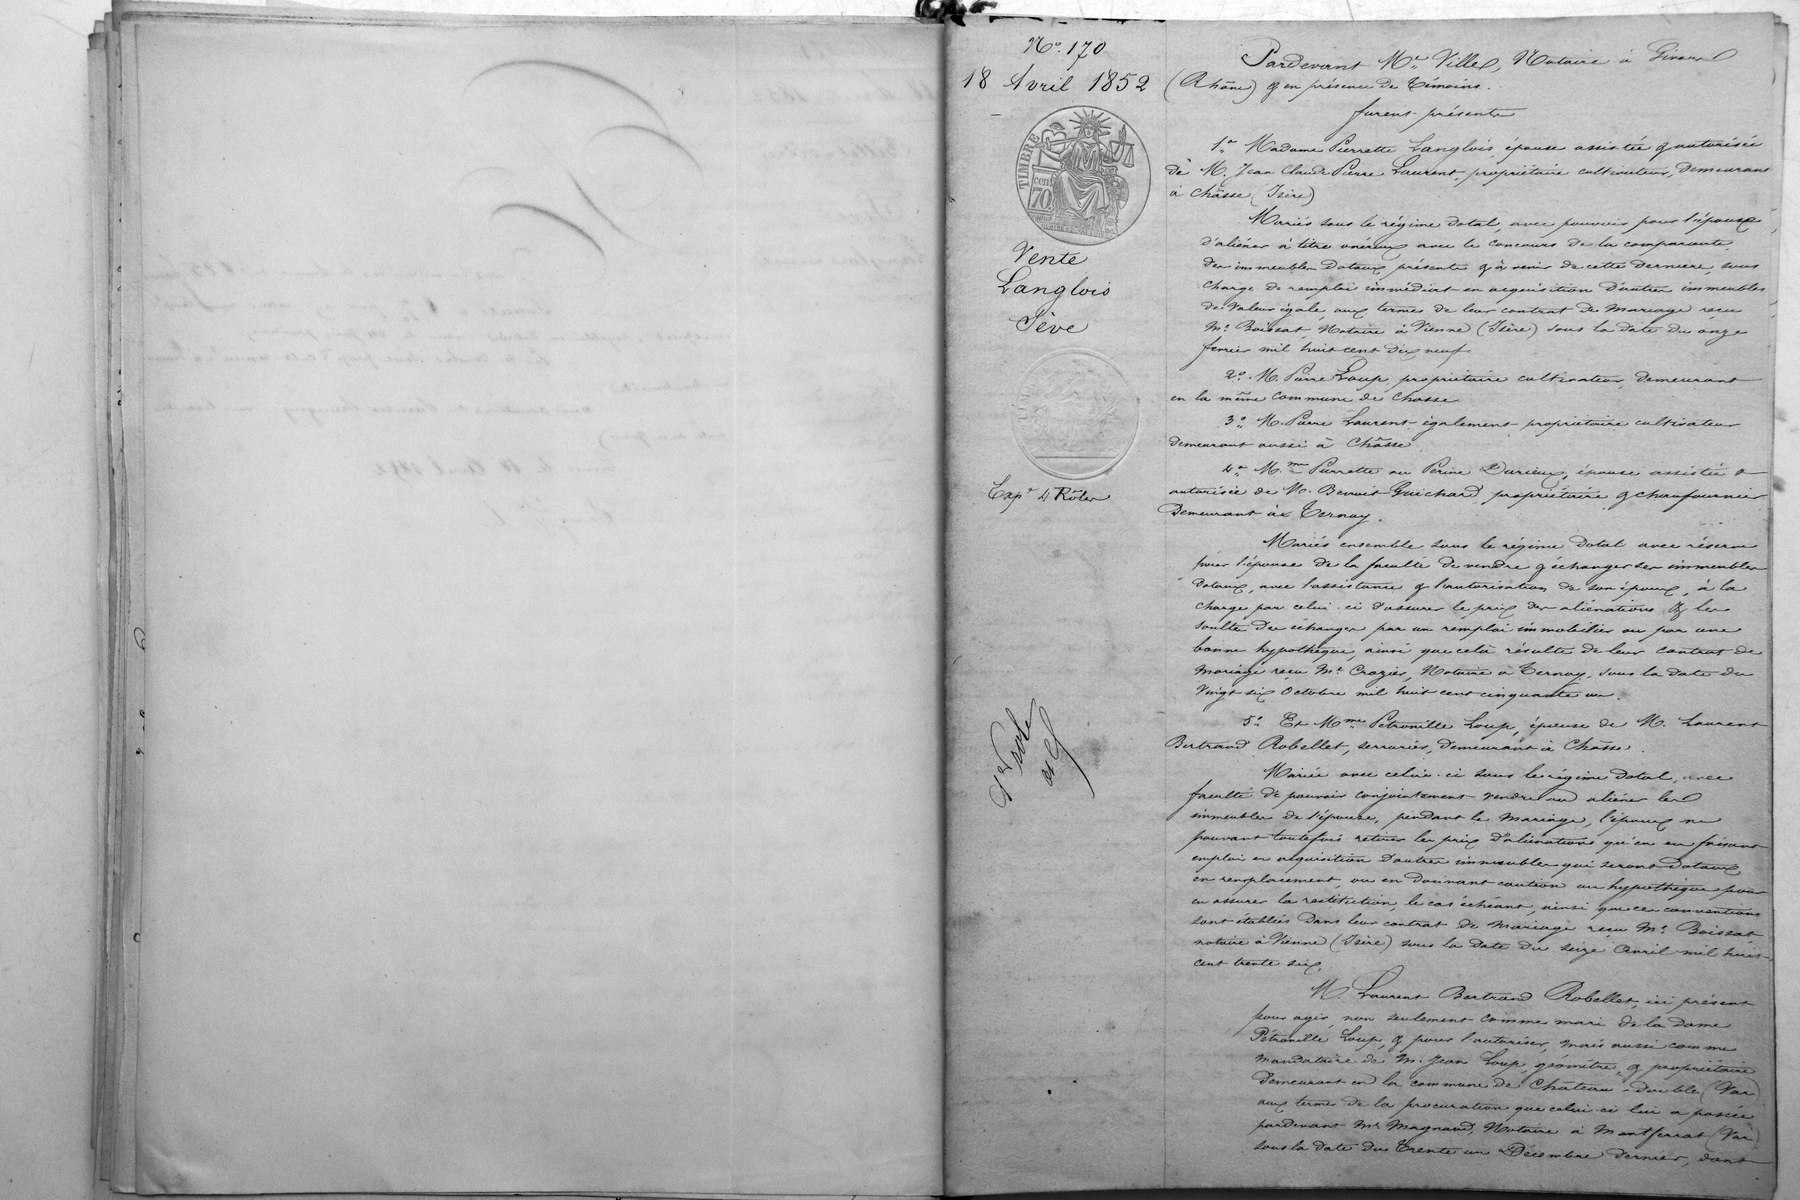 N.o 170
18 Avril 1852
TIMBRE
cent
70
Vente
Langlois
Sève
Exp.e 4 Rôles
Pardevant M.e Ville, Notaire à Givors
(Rhône) & en présence de témoins.
furent présents
1.o Madame Pierrette Langlois, épouse assistée & autorisée
de M. Jean Claude Pierre Laurent, propriétaire cultivateur, demeurant
à Chasse (Isère)
Mariés sous le régime dotal, avec pouvoir pour l'époux
d'aliéner à titre onéreux avec le concours de la comparante,
des immeubles dotaux présents & à venir de cette dernière, sous
charge de remploi immédiat en acquisition d'autres immeubles
de valeur égale, aux termes de leur contrat de mariage reçu
M.e Boissat, Notaire à Vienne (Isère) sous la date du onze
février mil huit cent dix neuf
2.o M. Pierre Loup, propriétaire cultivateur, demeurant
en la même commune de Chasse
3.o M. Pierre Laurent également propriétaire cultivateur
demeurant aussi à Chasse
4.o M.me Pierrette ou Perine Durieux, épouse assistée &
autorisée de M. Benoit Guichard, propriétaire & chaufournier
demeurant à Ternay.
Mariés ensemble sous le régime dotal avec réserve
pour l'épouse de la faculté de vendre & échanger ses immeubles
dotaux, avec l'assistance & l'autorisation de son époux, à la
charge par celui-ci d'assurer le prix des aliénations & les
soultes des échanges par un remploi immobilier ou par une
bonne hypothèque, ainsi que cela résulte de leur contrat de
mariage reçu M.e Crozier, Notaire à Ternay, sous la date du
vingt six Octobre mil huit cent cinquante un.
5.o Et M.me Pétronille Loup, épouse de M. Laurent
Bertrand Robellet, serrurier, demeurant à Chasse.
Mariée avec celui-ci sous le régime dotal, avec
faculté de pouvoir conjointement vendre ou aliéner les
immeubles de l'épouse, pendant le mariage, l'époux ne
pouvant toutefois retirer les prix d'aliénations qu'en en faisant
emploi en acquisition d'autres immeubles qui seront dotaux
en remplacement, ou en donnant caution ou hypothèque pour
en assurer la restitution, le cas échéant, ainsi que ces conventions
sont établies dans leur contrat de mariage reçu M.e Boissat
notaire à Vienne (Isère) sous la date du seize Avril mil huit
cent trente six.
M. Laurent Bertrand Robellet, ici présent
pour agir, non seulement comme mari de la dame
Pétronille Loup, & pour l'autoriser, mais aussi comme
mandataire de M. Jean Loup, géomètre, & propriétaire
demeurant en la commune de Château-double (Var)
aux termes de la procuration que celui-ci lui a passée
pardevant M.e Magnaud, Notaire à Montferrat (Var)
sous la date du trente un Décembre dernier, dont